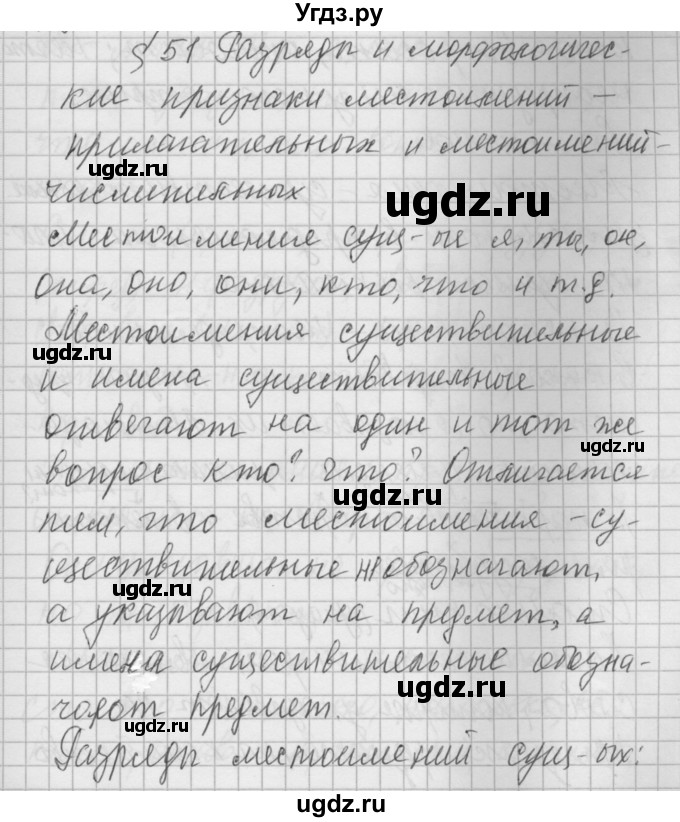 Угдз.ру
§ 51 Разряды и морфологичес-
кие признаки местоимений –
прилагательных и местоимений-
ugdz.ru
ugdz.ru
числительных
Местоимения сущ-ые я, ты, он,
ugdz.ru
она, оно, они, кто, что и т.д.
Местоимения существительные
ugdz.ru
и имена существительные
отвечают на один и тот же
ugdz.ru
вопрос кто? что? Отличается
ugdz.ru
тем, что местоимения -су-
ществительные не обозначают,
ugdz.ru
а указывают на предмет, а
имена существительные обозна-
ugdz.ru
чают предмет.
ugdz.ru
Разряды местоимений сущ-ых:
ugdz.ru
ugdz.ru